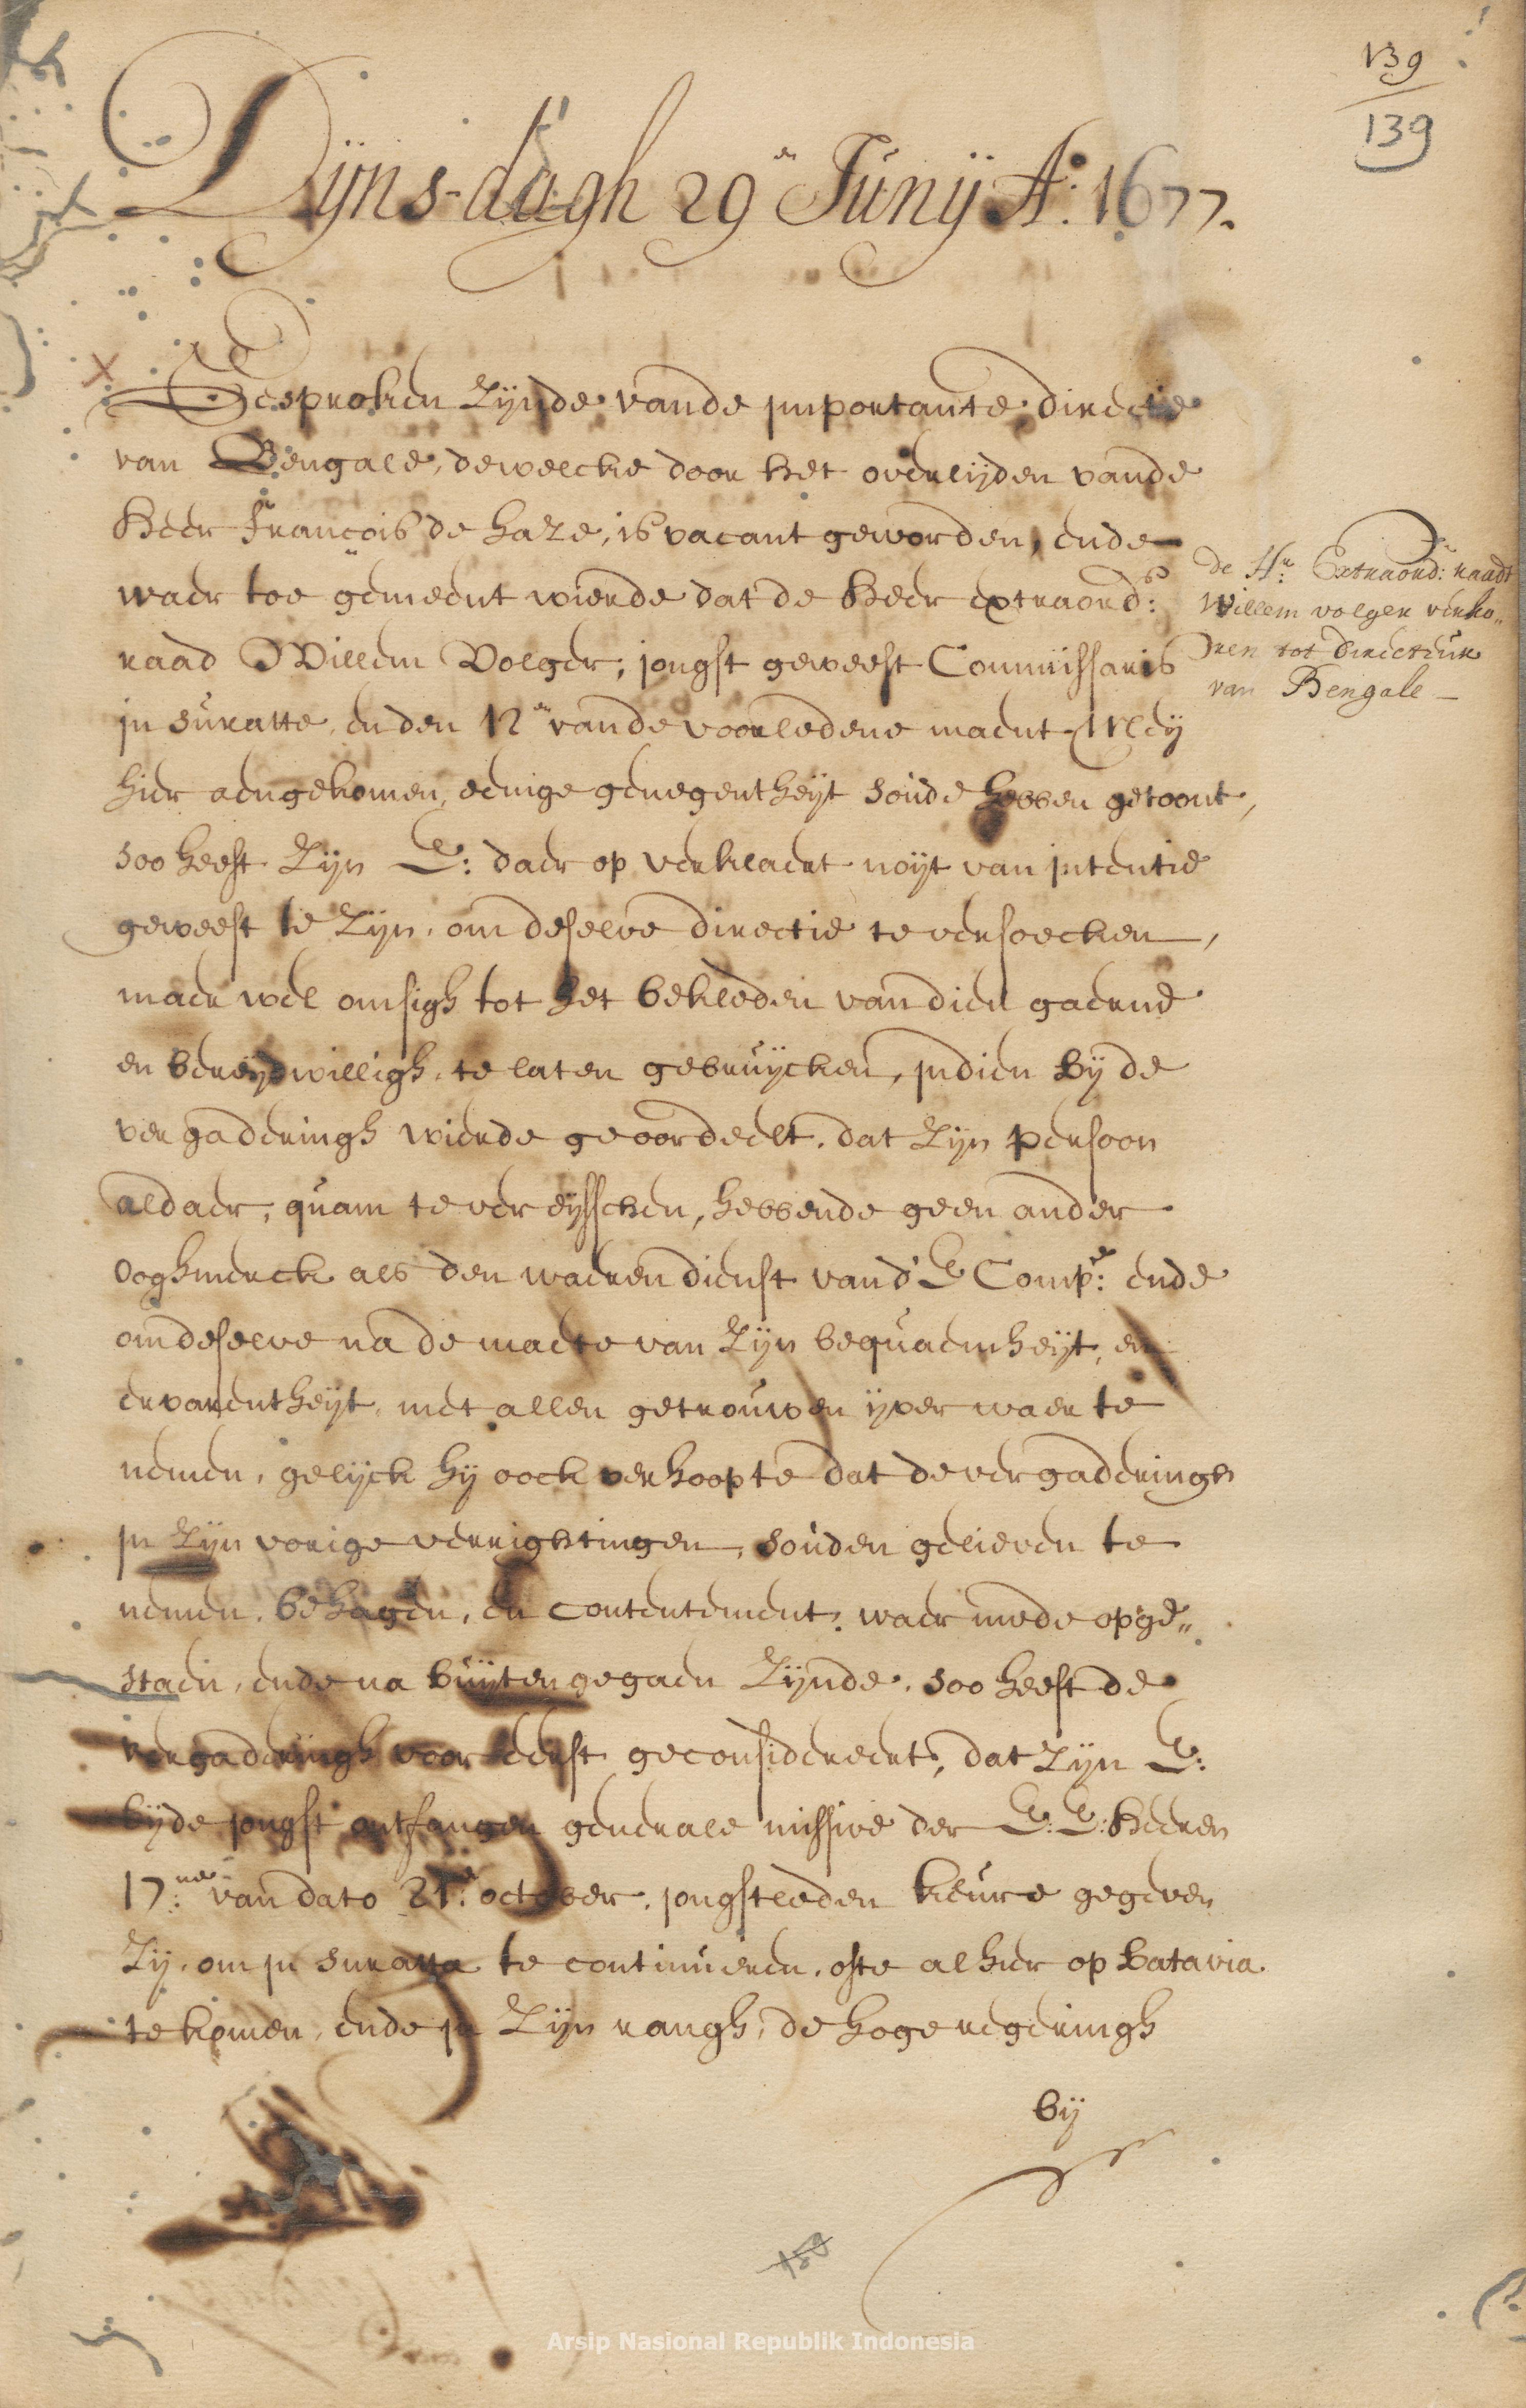 139
139
Dijns-dagh 29en Junij Ao: 1677.
Gesproken Zijnde vande importante directie
van Bengale, dewelcke door het overlijden vande
Heer françois de haze, is vacant geworden, ende
waer toe gemeent wierde dat de Heer extraords:
raad Willem Volger, jongst geweest Commissaris
in suratte, en den 12en vande voorledene maent Meij
hier aengekomen, eenige genegentheijt soude hebben getoont,
soo heeft Zijn E: daer op verklaert noijt van intentie
geweest te Zijn, om deselve directie te versoecken,
maer wel om sigh tot het bekleden van dien gaerne
en bereijdwilligh, te laten gebruijcken, indien bij de
vergaderingh wierde geoordeelt, dat Zijn persoon
aldaer, quam te vereijsschen, hebbende geen ander
ooghmerck als den waeren dienst vand' E Compe: ende
om deselve na de maete van Zijn bequaemheijt, en
ervarentheijt, met allen getrouwen ijver waer te
nemen, gelijck hij oock verhoopte dat de vergaderingh
in Zijn vorige verrightingen, souden gelieven te
nemen, behagen, en contentement, waer mede opge„
staen, ende na buijten gegaen Zijnde, soo heeft de
vergaderingh voor eerst geconsidereert, dat Zijn E:
bijde jongst ontfangen generale missive der E: E: Heeren
17:nen van dato 21e: october, jongstleden keure gegeven
Zij, om in suratta te continueren, ofte alhier op batavia
te komen, ende in Zijn rangh, de hoge regeringh
bij
de Hr: Extraord: raadt
Willem volger verko„
ren tot directeur
van Bengale
Arsip Nasional Republik Indonesia